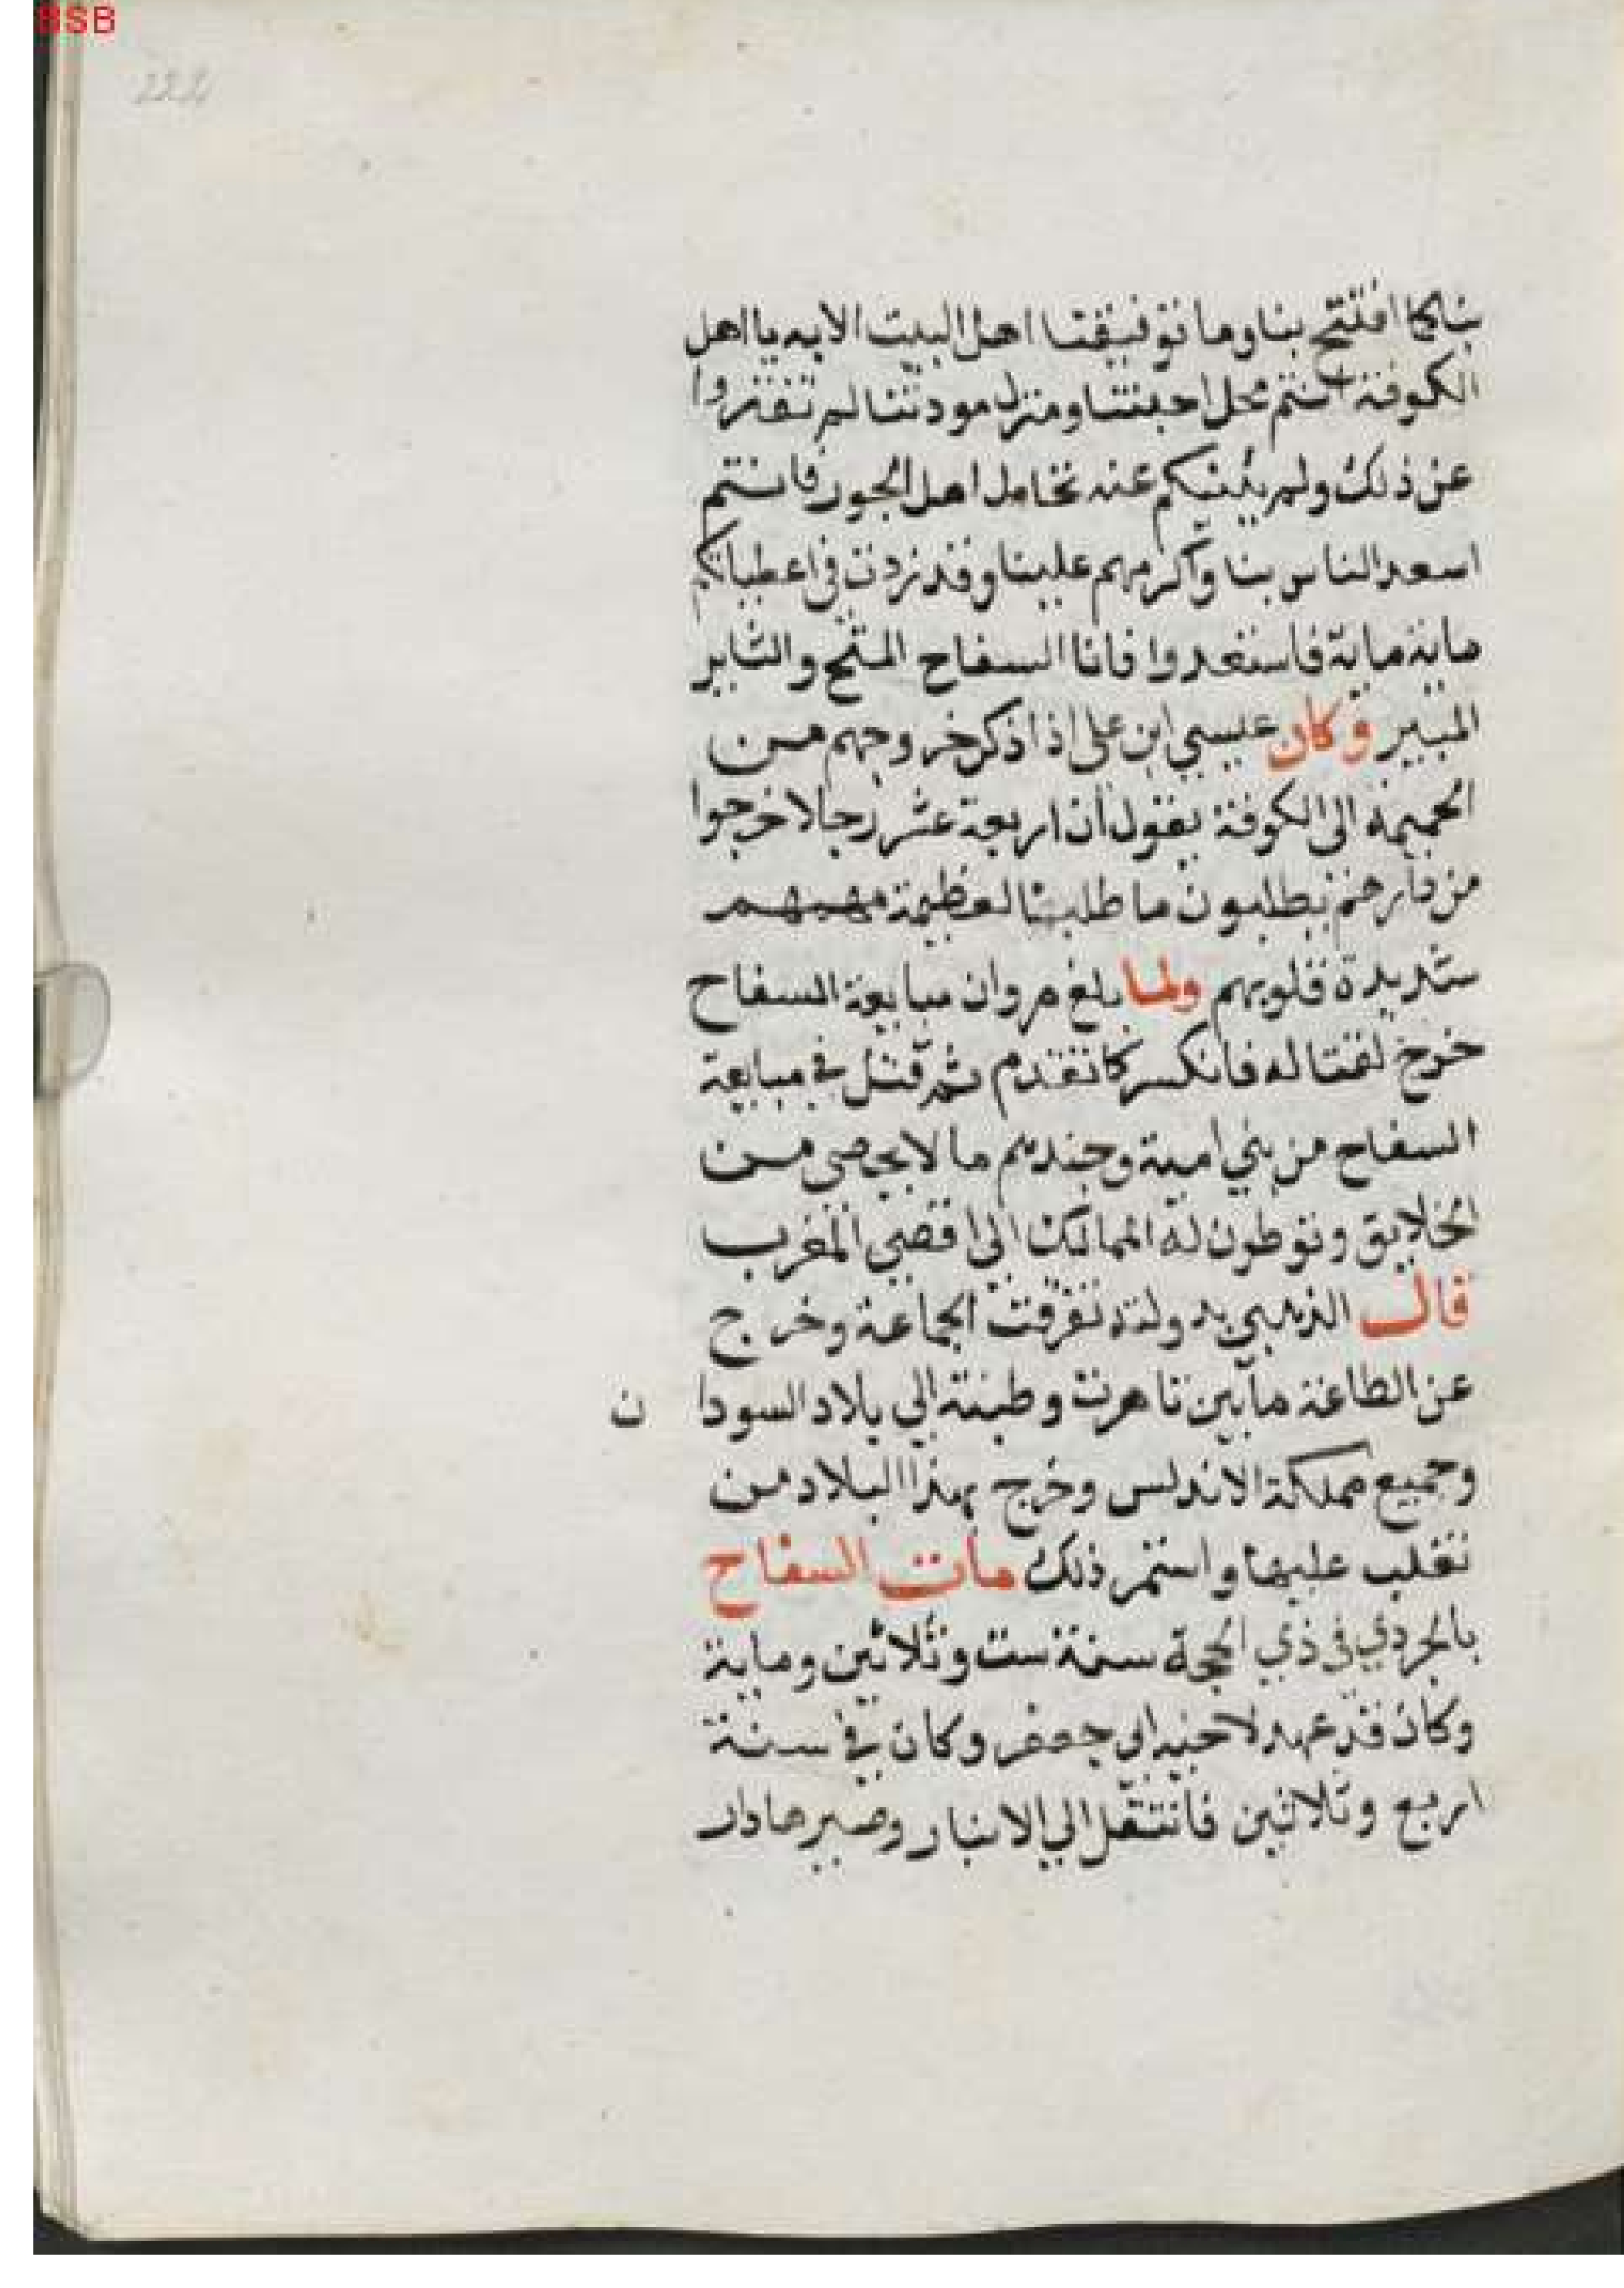 BSB
222
بنا كما افتتح بنا وما توفيقنا اهل البيت الا به يا اهل
الكوفة انتم محل احبتنا ومنزل مودتنا لم تفتروا
عن ذلك ولم يثنيكم عنه تحامل اهل الجور فانتم
اسعد الناس بنا واكرمهم علينا وقد زدت في اعطياتكم
ماية ماية فاستعدوا فانا السفاح المتح والثاير
المبير وكان عيسي ابن على اذا ذكر خروجهم من
الحميمة الى الكوفة يقول ان اربعة عشر رجالا خرجوا
من دارهم يطلبون ما طلبنا لعظيمة مهمهم
شديدة قلوبهم ولما بلغ مروان مبايعة السفاح
خرج لقتاله فانكسر كما تقدم ثم قتل في مبايعة
السفاح من بني امية وجندهم ما لا يحصى من
الخلايق وتوطون له الممالك الى اقصى المغرب
قال الذهبي بدولته تفرقت الجماعة وخرج
عن الطاعة ما بين تاهرت وطبنة الي بلاد السودا ن
وجميع مملكة الاندلس وخرج بهذا البلاد من
تغلب عليها واستمر ذلك مات السفاح
بالجردي في ذي الحجة سنة ست وثلاثين وماية
وكان قد عهد لاخيه ابي جعفر وكان في سنة
اربع وثلاثين فانتقل الي الانبار وصيرها دار